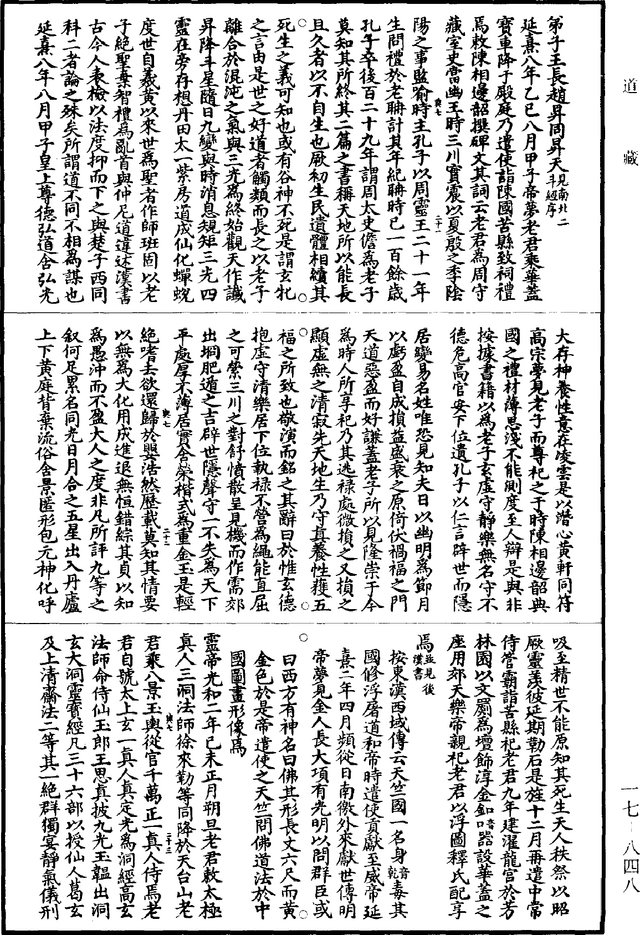 道藏
弟子王長趙昇周昇天見南北二斗經序
延熹八年乙巳八月甲子帝夢老君乘華蓋
寶車降于殿庭乃遣使詣陳國苦縣致祠禮
焉敕陳相邊韶撰碑文其詞云老君為周守
藏室史當幽王時三川實震以夏殷之季陰
陽之事監喻時主孔子以周靈王二十一年
生問禮於老聃計其年紀聃時已一百餘歲
孔子卒後百二十九年謂周太史儋為老子
莫知其所終其二篇之書稱天地所以能長
且久者以不自生也厥初生民遺體相續其
死生之義可知也或有谷神不死是謂玄牝
之言由是世之好道者觸類而長之以老子
離合於混沌之氣與三光為終始觀天作讖
昇降斗星隨日九變與時消息規矩三光四
靈在旁存想丹田太一紫房道成仙化蟬蛻
度世自羲黃以來世為聖者作師班固以老
子絕聖棄智禮為亂首與仲尼道違述漢書
古今人表檢以法度抑而下之與楚子西同
科二者論之殊矣所謂道不同不相為謀也
延熹八年八月甲子皇上尊德弘道含弘光
大存神養性意在凌雲是以潛心黃軒同符
高宗夢見老子而尊祀之于時陳相邊韶典
國之禮材薄思淺不能測度至人辯是與非
按據書籍以為老子玄虛守靜樂無名守不
德危高官安下位遺孔子以仁言辟世而隱
居變易名姓唯恐見知夫日以幽明為節月
以虧盈自成損益盛衰之原倚伏禍福之門
天道惡盈而好謙蓋老子所以見隆崇于今
為時人所享祀乃其逃祿處微損之又損之
顯虛無之清寂先天地生乃守真養性獲五
福之所致也敬演而銘之其辭曰於惟玄德
抱虛守清樂居下位執祿不營為繩能直屈
之可縈三川之對舒憤散呈見機而作需郊
出坰肥遁之吉辟世隱聲守一不失為天下
平處厚不薄居實舍榮楷式為重金玉是輕
絕嗜去欲還歸於嬰浩然歷載莫知其情要
以無為大化用成進退無恒錯綜其貞以知
為愚沖而不盈大人之度非凡所評九等之
叙何足累名同光日月合之五星出入丹廬
上下黃庭背棄流俗含景匿形包元神化呼
吸至精世不能原知其死生天人秩祭以昭
厥靈羨彼延期勒石是旌十二月再遣中常
侍管霸詣苦縣祀老君九年建濯龍宮於芳
林園以文罽為壇飾淳金釦器設華蓋之
座用郊天樂帝親祀老君以浮圖釋氏配享
焉並見後漢書
按東漢西域傳云天竺國一名身音乾毒其
國修浮屠道和帝時遣使貢獻至威帝延
熹二年四月頻從日南徼外來獻世傳明
帝夢見金人長大項有光明以問群臣或
曰西方有神名曰佛其形長丈六尺而黃
金色於是帝遣使之天竺問佛道法於中
國圖畫形像焉
靈帝光和二年己未正月朔旦老君敕太極
真人三洞法師徐來勒等同降於天台山老
君乘八景玉輿從官千萬正一真人侍焉老
君自號太上玄一真人真定光為洞經高玄
法師命侍仙玉郎王思真披九光玉韞出洞
玄大洞靈寶經凡三十六部以授仙人葛玄
及上清齋法二等其一絕群獨宴靜氣儀刑
一七-八四八